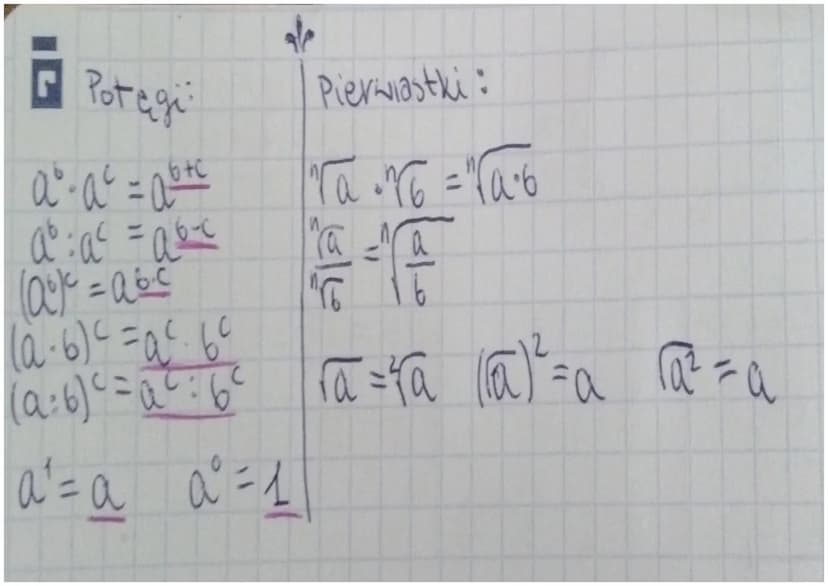 Potęgi:
a^b · a^c = a^{b+c}
a^b : a^c = a^{b-c}
(a^b)^c = a^{b·c}
(a·b)^c = a^c · b^c
(a:b)^c = a^c : b^c
a^1 = a a^0 = 1
Pierwiastki:
ⁿ√a · ⁿ√b = ⁿ√(a·b)
ⁿ√a / ⁿ√b = ⁿ√(a/b)
√a = ²√a (√a)² = a √a² = a